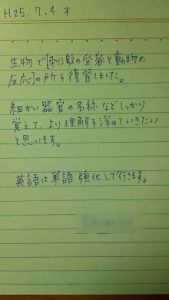 H25.7.4 木
生物で「刺激の受容と動物の
反応」の所を復習しました。
細かい器官の名称などしっかり
覚えて、より理解を深めていきたい
と思います。
英語は単語強化して行きます。